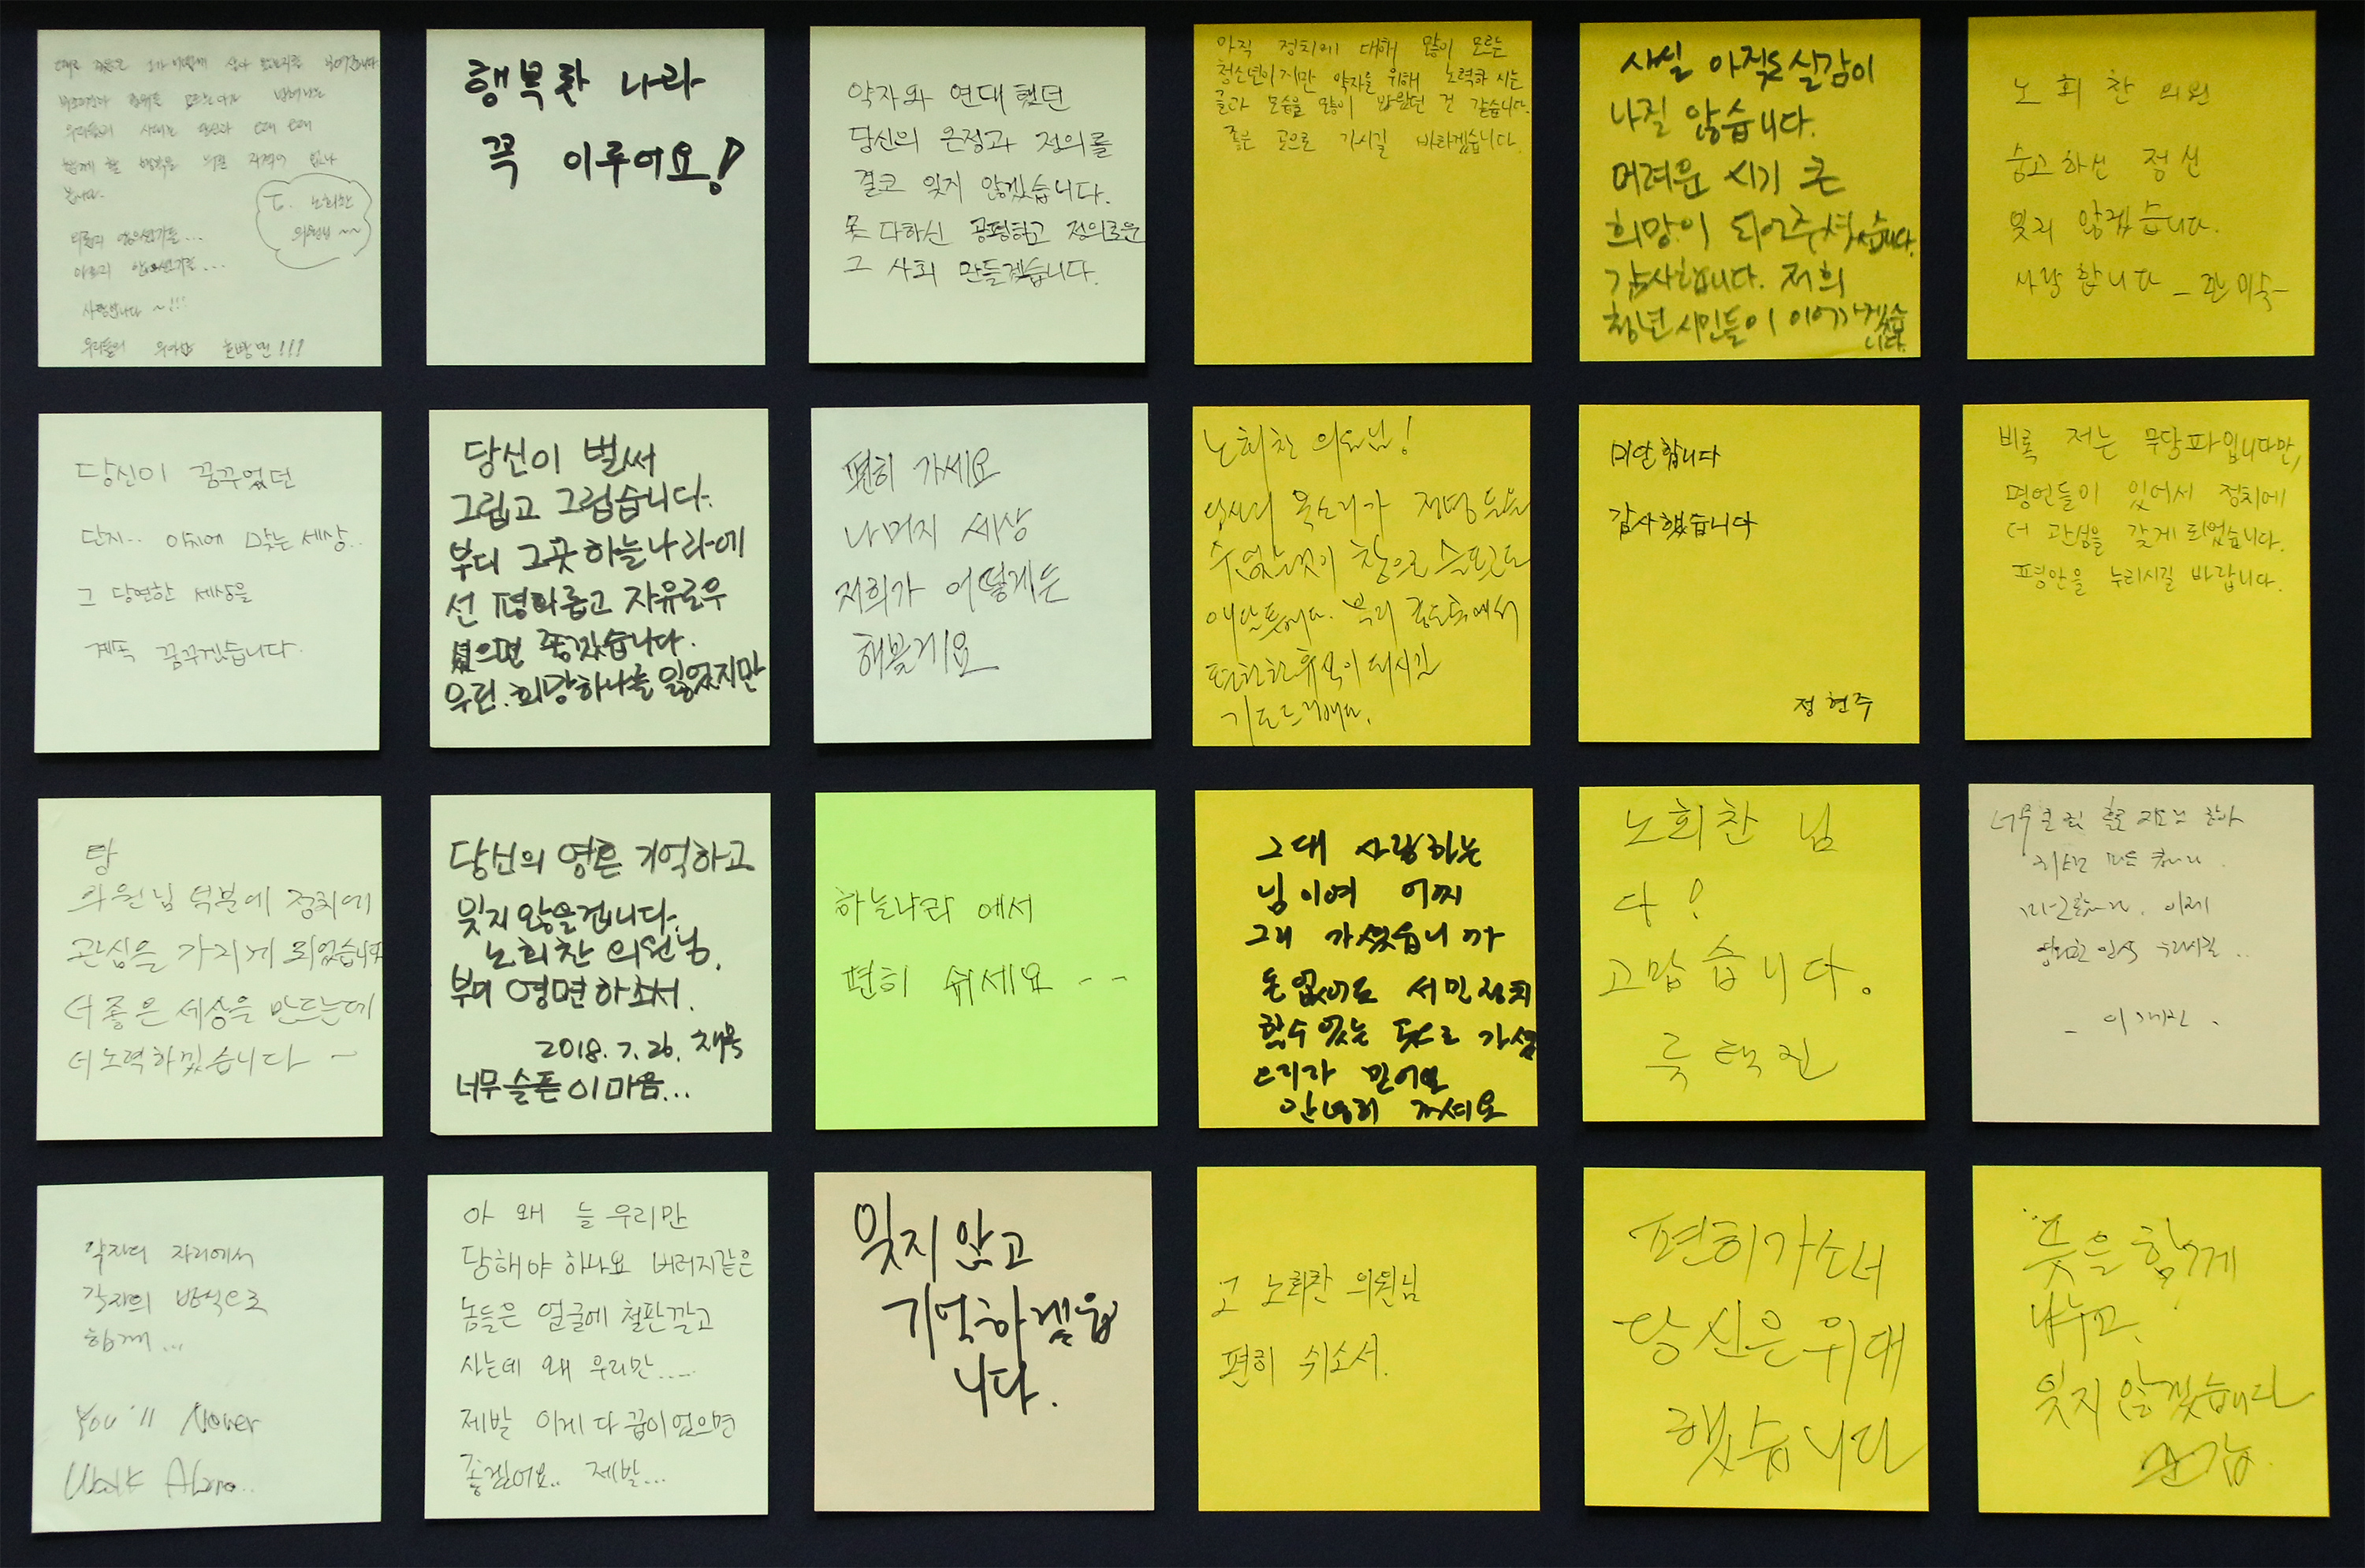 우리들의
사랑합니다 ~!!!
노회찬
의원님 ~~
행복한 나라
꼭 이루어요!
약자와 연대했던
당신의 온정과 정의를
결코 잊지 않겠습니다.
못 다하신 공평하고 정의로운
그 사회 만들겠습니다.
아직 정치에 대해 많이 모르는
청소년이지만 약자를 위해 노력하시는
글과 모습을 많이 봐왔던 것 같습니다.
좋은 곳으로 가시길 바라겠습니다.
사실 아직도 실감이
나질 않습니다.
어려운 시기 큰
희망이 되어주셔습니다.
감사합니다. 저희
청년 시민들이 이어가겠습
니다.
노회찬 의원
숭고하신 정신
잊지 않겠습니다.
사랑합니다 - 미숙-
당신이 꿈꾸었던
단지.. 이치에 맞는 세상..
그 당연한 세상을
계속 꿈꾸겠습니다.
당신이 벌써
그립고 그립습니다.
부디 그곳 하늘나라에
선 평화롭고 자유로우
셨으면 좋겠습니다.
우린. 희망하나를 잃었지만
편히 가세요
나머지 세상
저희가 어떻게든
해볼게요
노회찬 의원님!
당신의 목소리가 들을
수 없는것이 참으로 슬프고도
편안한 휴식이 되시길
기도드립니다.
미안합니다
감사했습니다
정현주
비록 저는 무당파입니다만,
명언들이 있어서 정치에
더 관심을 갖게 되었습니다.
평안을 누리시길 바랍니다.
당
의원님 덕분에 정치에
관심을 가지게 되었습니다
더 좋은 세상을 만드는데
더 노력하겠습니다 ~
당신의 영혼 기억하고
잊지않을겁니다.
노회찬 의원님.
부디 영면하소서.
2018. 7. 26.
너무 슬픈 이 마음...
하늘나라에서
편히 쉬세요 --
그대 사랑하는
님이여 어찌
그리 가셨습니까
돈없어도 서민정치
할수있는 곳으로 가셨
으리라 믿어요
안녕히 가세요
노회찬 님
다!
고맙습니다.
륙택진
너무 큰
이제
영원한 안식 누리시길..
약자의 자리에서
각자의 방식으로
함께...
You'll Never
Walk Alone..
아 왜 늘 우리만
당해야 하나요 버러지같은
놈들은 얼굴에 철판깔고
사는데 왜 우리만.....
제발 이게 다 꿈이었으면
좋겠어요.. 제발...
잊지 않고
기억하겠읍
니다.
고 노회찬 의원님
편히 쉬소서.
편히가소서
당신은 위대
했습니다
뜻을 함께
나누고,
잊지 않겠습니다